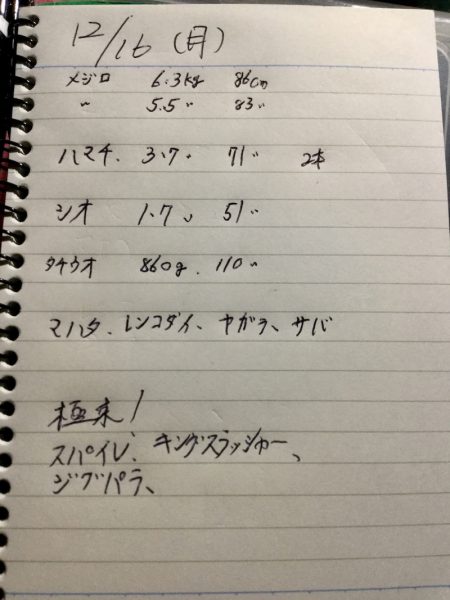 12/16 (月)
メジロ 6.3kg 86cm
〃 5.5〃 83〃
ハマチ. 3.7〃 71〃 2本
シオ 1.7〃 51〃
タチウオ 860g. 110〃
マハタ、レンコダイ、ヤガラ、サバ
スパイレ、キングスラッシャー、
ジグパラ、